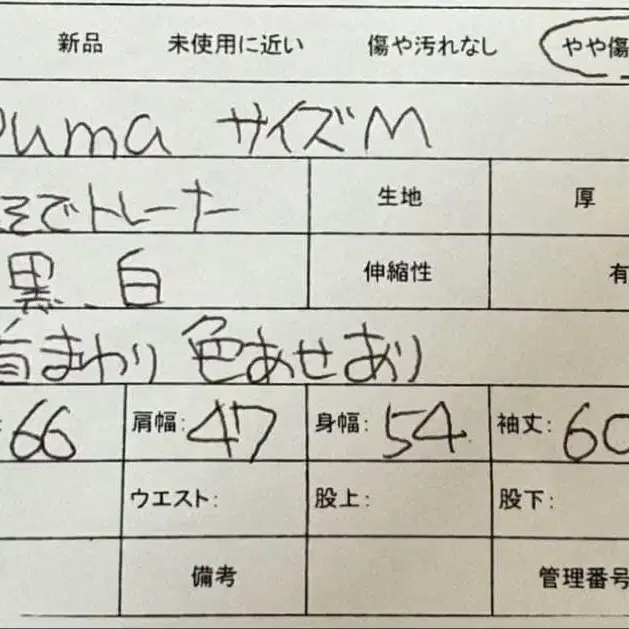 新品 未使用に近い 傷や汚れなし やや傷
Puma サイズM
そでトレーナー 生地 厚
黒、白 伸縮性 有
首まわり 色あせあり
66 肩幅: 47 身幅: 54 袖丈: 60
ウエスト: 股上: 股下:
備考 管理番号